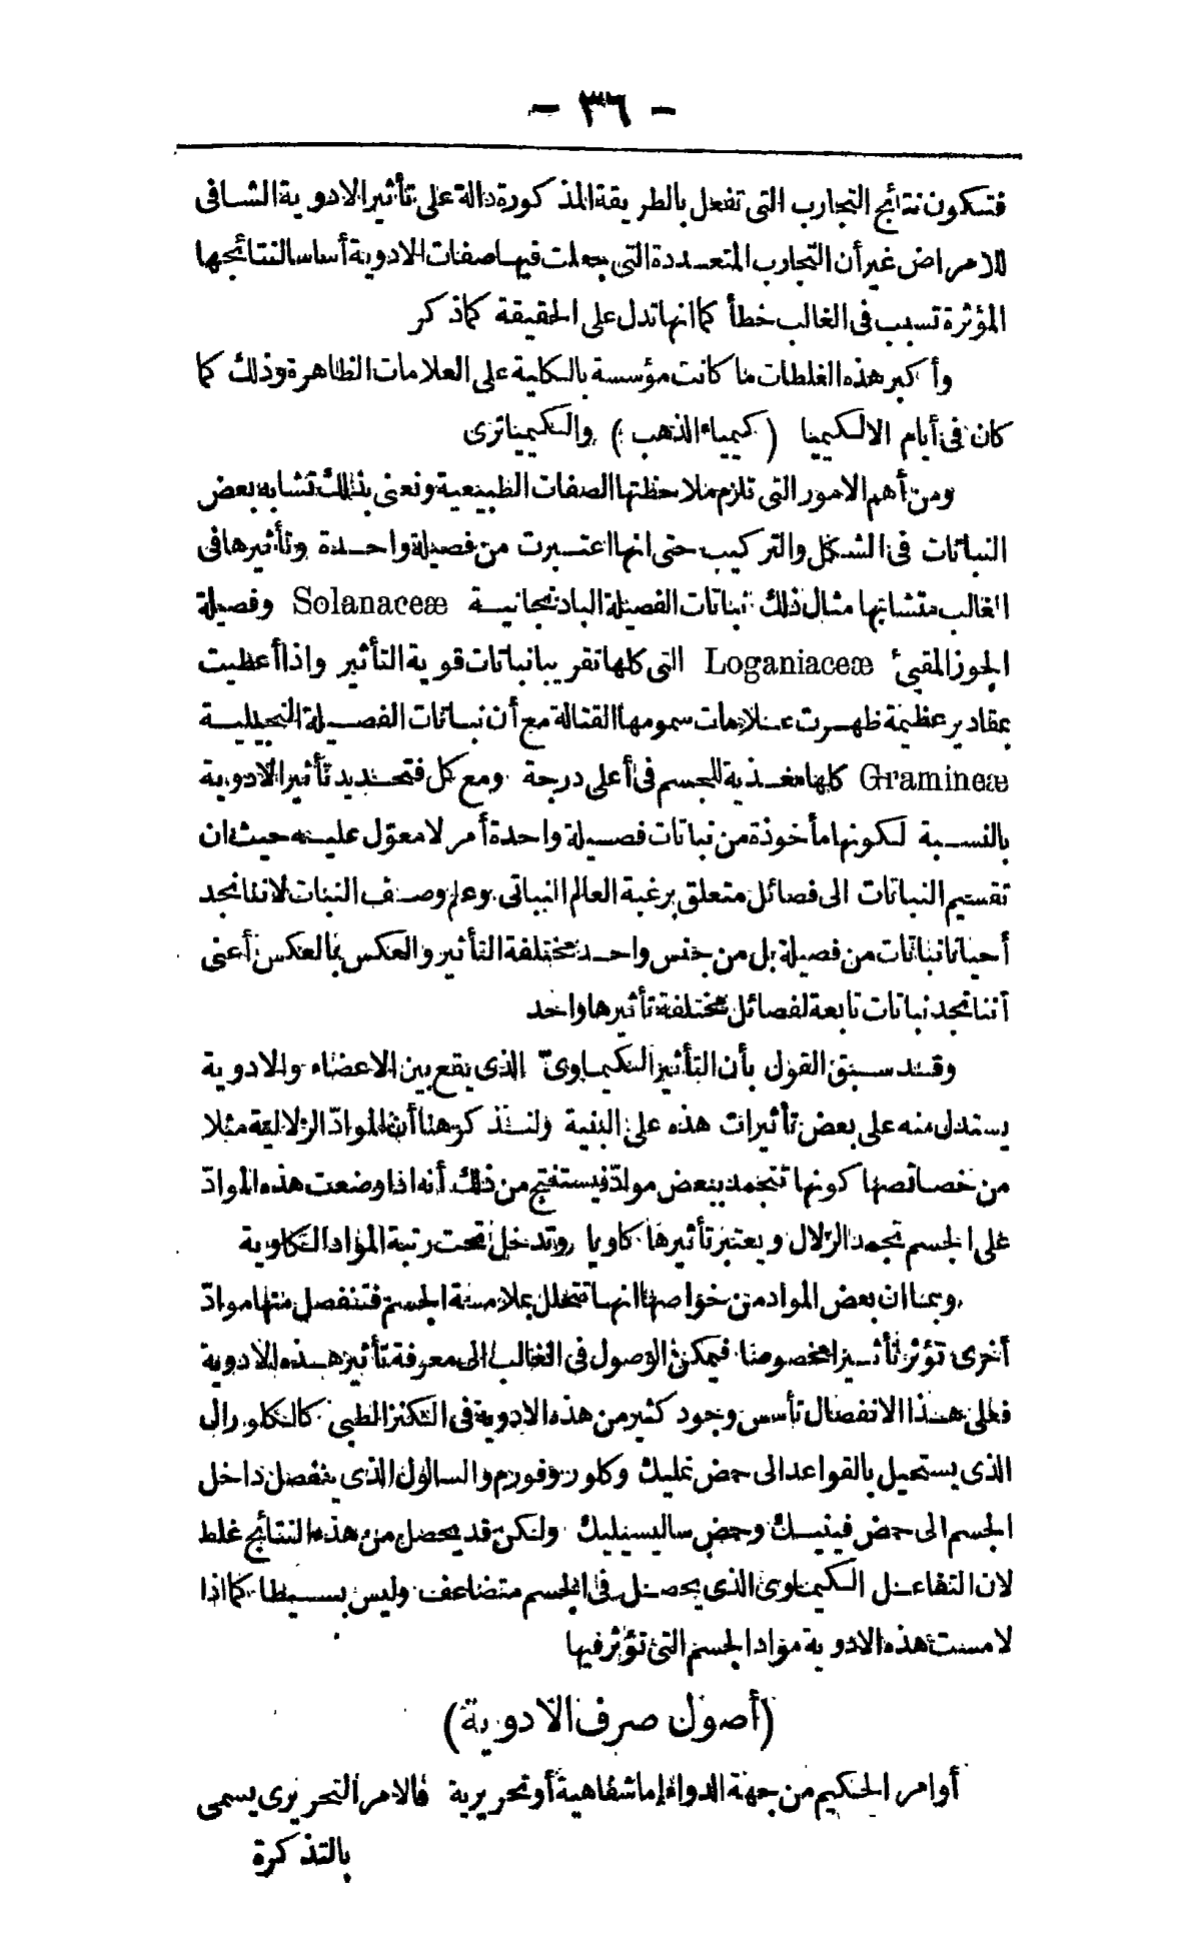 - ٣٦ -
فتكون نتائج التجارب التى تفعل بالطريقة المذكورة دالة على تأثير الادوية الشافى
للامراض غير أن التجارب المتعددة التى جعلت فيها صفات الادوية أساسا لنتائجها
المؤثرة تسبب فى الغالب خطأ كما انها تدل على الحقيقة كما ذكر
وأكبر هذه الغلطات ما كانت مؤسسة بالكلية على العلامات الظاهرة وذلك كما
كان فى أيام الالكيميا (كيمياء الذهب) والكيمياترى
ومن أهم الامور التى تلزم ملاحظتها الصفات الطبيعية ونعنى بذلك تشابه بعض
النباتات فى الشكل والتركيب حتى انها اعتبرت من فصيلة واحدة وتأثيرها فى
الغالب متشابها مثال ذلك نباتات الفصيلة الباذنجانية Solanaceæ وفصيلة
الجوز المقيئ Loganiaceæ التى كلها تقريبا نباتات قوية التأثير واذا أعطيت
بمقادير عظيمة ظهرت علامات سمومها القتالة مع أن نباتات الفصيلة النجيلية
Gramineæ كلها مغذية للجسم فى أعلى درجة ومع كل فتحديد تأثير الادوية
بالنسبة لكونها مأخوذة من نباتات فصيلة واحدة أمر لا معوّل عليه حيث ان
تقسيم النباتات الى فصائل متعلق برغبة العالم النباتى وعلم وصف النبات لاننا نجد
أحيانا نباتات من فصيلة بل من جنس واحد مختلفة التأثير والعكس بالعكس أعنى
أننا نجد نباتات تابعة لفصائل مختلفة تأثيرها واحد
وقد سبق القول بأن التأثير الكيماوىّ الذى يقع بين الاعضاء والادوية
يستدل منه على بعض تأثيرات هذه على البنية ولنذكر هنا أن المواد الزلالية مثلا
من خصائصها كونها تتجمد ببعض موادّ فيستنتج من ذلك أنه اذا وضعت هذه الموادّ
على الجسم تجمد الزلال ويعتبر تأثيرها كاويا وتدخل تحت رتبة المواد الكاوية
وبما ان بعض المواد من خواصها انها تتحلل بملامسة الجسم فتنفصل منها موادّ
أخرى تؤثر تأثيرا مخصوصا فيمكن الوصول فى الغالب الى معرفة تأثير هذه الادوية
فعلى هذا الانفصال تأسس وجود كثير من هذه الادوية فى الكنز الطبى كالكلورال
الذى يستحيل بالقواعد الى حمض نمليك وكلوروفورم والسالول الذى ينفصل داخل
الجسم الى حمض فينيك وحمض ساليسيليك ولكن قد يحصل من هذه النتائج غلط
لان التفاعل الكيماوى الذى يحصل فى الجسم متضاعف وليس بسيطا كما اذا
لامست هذه الادوية مواد الجسم التى تؤثر فيها
(أصول صرف الادوية)
أوامر الحكيم من جهة الدواء إما شفاهية أو تحريرية فالامر التحريرى يسمى
بالتذكرة